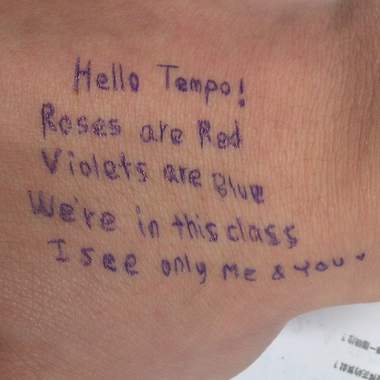 Hello Tempo!
Roses are Red
Violets are Blue
We're in this class
I see only me & you